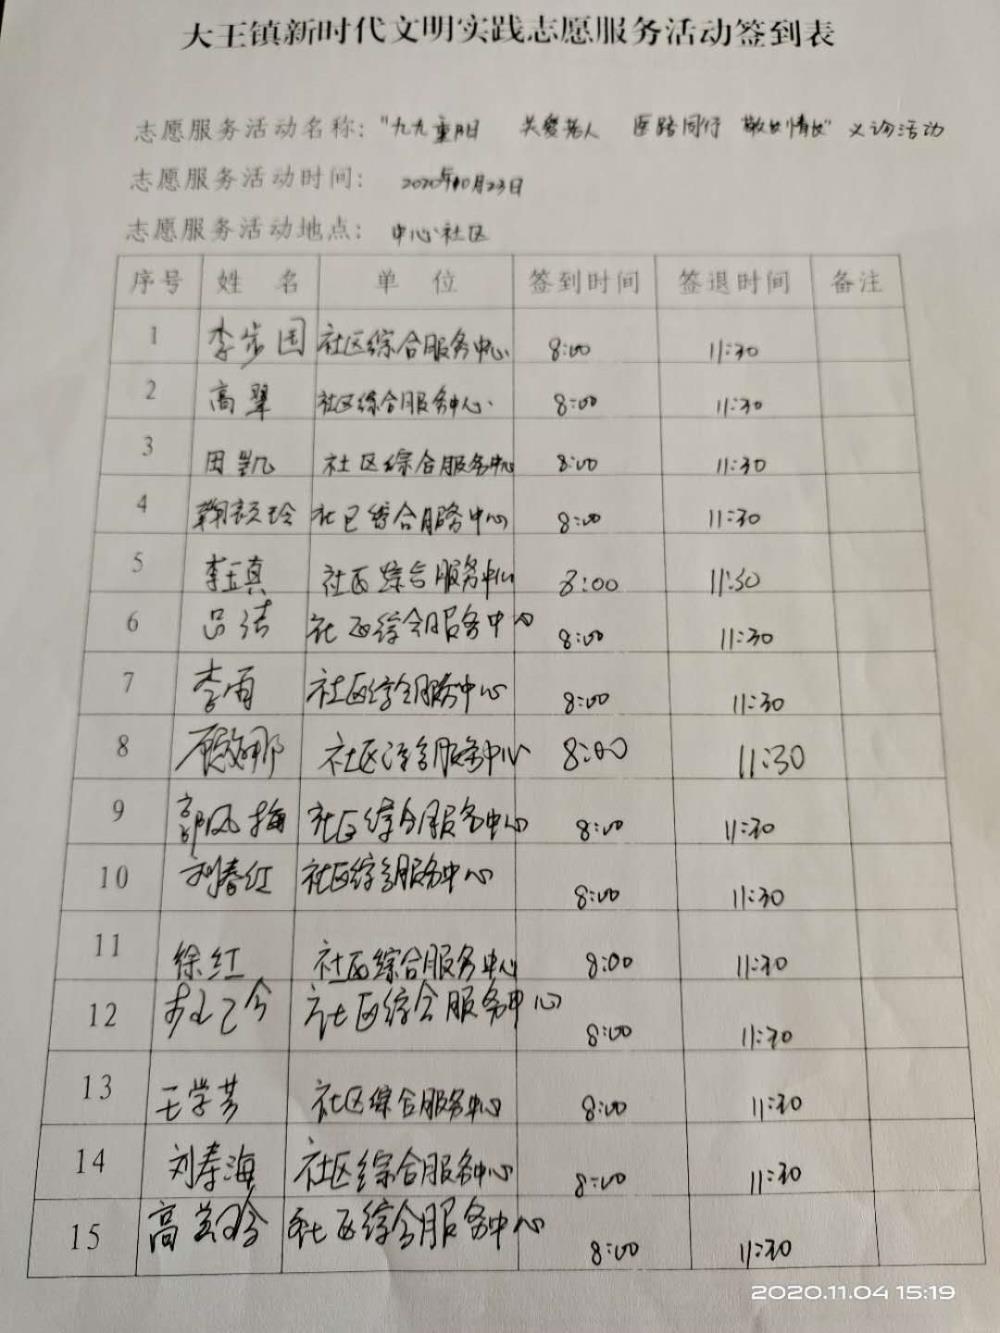 大王镇新时代文明实践志愿服务活动签到表
志愿服务活动名称：“九九重阳 关爱老人 医路同行 敬老情长”义诊活动
志愿服务活动时间： 2020年10月23日
志愿服务活动地点： 中心社区
序号 姓 名 单 位 签到时间 签退时间 备注
1 李步国 社区综合服务中心 8:00 11:30
2 高翠 社区综合服务中心 8:00 11:30
3 田凯 社区综合服务中心 8:00 11:30
4 社区综合服务中心 8:00 11:30
5 李玉真 社区综合服务中心 8:00 11:30
6 吕洁 社区综合服务中心 8:00 11:30
7 李雨 社区综合服务中心 8:00 11:30
8 社区综合服务中心 8:00 11:30
9 郭凤梅 社区综合服务中心 8:00 11:30
10 刘春红 社区综合服务中心 8:00 11:30
11 徐红 社区综合服务中心 8:00 11:30
12 社区综合服务中心 8:00 11:30
13 王学芳 社区综合服务中心 8:00 11:30
14 刘春海 社区综合服务中心 8:00 11:30
15 社区综合服务中心 8:00 11:30
2020.11.04 15:19